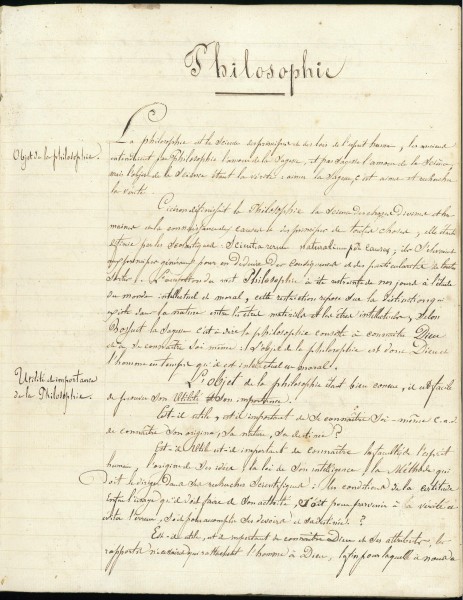 Philosophie
La philosophie est la science des principes et des lois de l'esprit humain, les anciens
Objet de la philosophie.
entendaient par Philosophie l'amour de la Sagesse, et par Sagesse l'amour de la Science,
mais l'objet de la Science étant la vérité : aimer la Sagesse, c'est aimer et rechercher
la vérité
Cicéron définissait la Philosophie la Science des choses Divines et hu-
maines la connaissance des causes et des principes de toutes choses, elle était
par les Scolastiques Scientia rerum naturalium per causas
L'acception du mot Philosophie a été restreinte de nos jours à l'étude
du monde intellectuel et moral, cette restriction repose sur la distinction qui
existe dans la nature entre les êtres matériels et les êtres intellectuels, Selon
Bossuet la Sagesse c'est-à-dire la philosophie consiste à connaître Dieu
et à se connaître Soi même : l'objet de la philosophie est donc Dieu et
l'homme en tant qu'il est intellectuel et moral.
Utilité et importance
de la Philosophie.
L'objet de la philosophie étant bien connu, il est facile
de prouver son Utilité et son importance.
Est-il utile, est-il important de Se connaître Soi-même c.a.d
de connaître son origine, sa nature, sa destinée ?
Est-il Utile est-il important de connaître les facultés de l'esprit
humain, l'origine de ses idées, la loi de son intelligence, la Méthode qui
doit le diriger dans ses recherches Scientifiques : les conditions de la certitude
enfin l'usage qu'il doit faire de son activité, soit pour parvenir à la vérité et
éviter l'erreur, soit pour accomplir ses devoirs et sa destinée ?
Est-il utile, est-il important de connaître Dieu et ses attributs, les
rapports nécessaires qui rattachent l'homme à Dieu, la fin pour laquelle il nous a